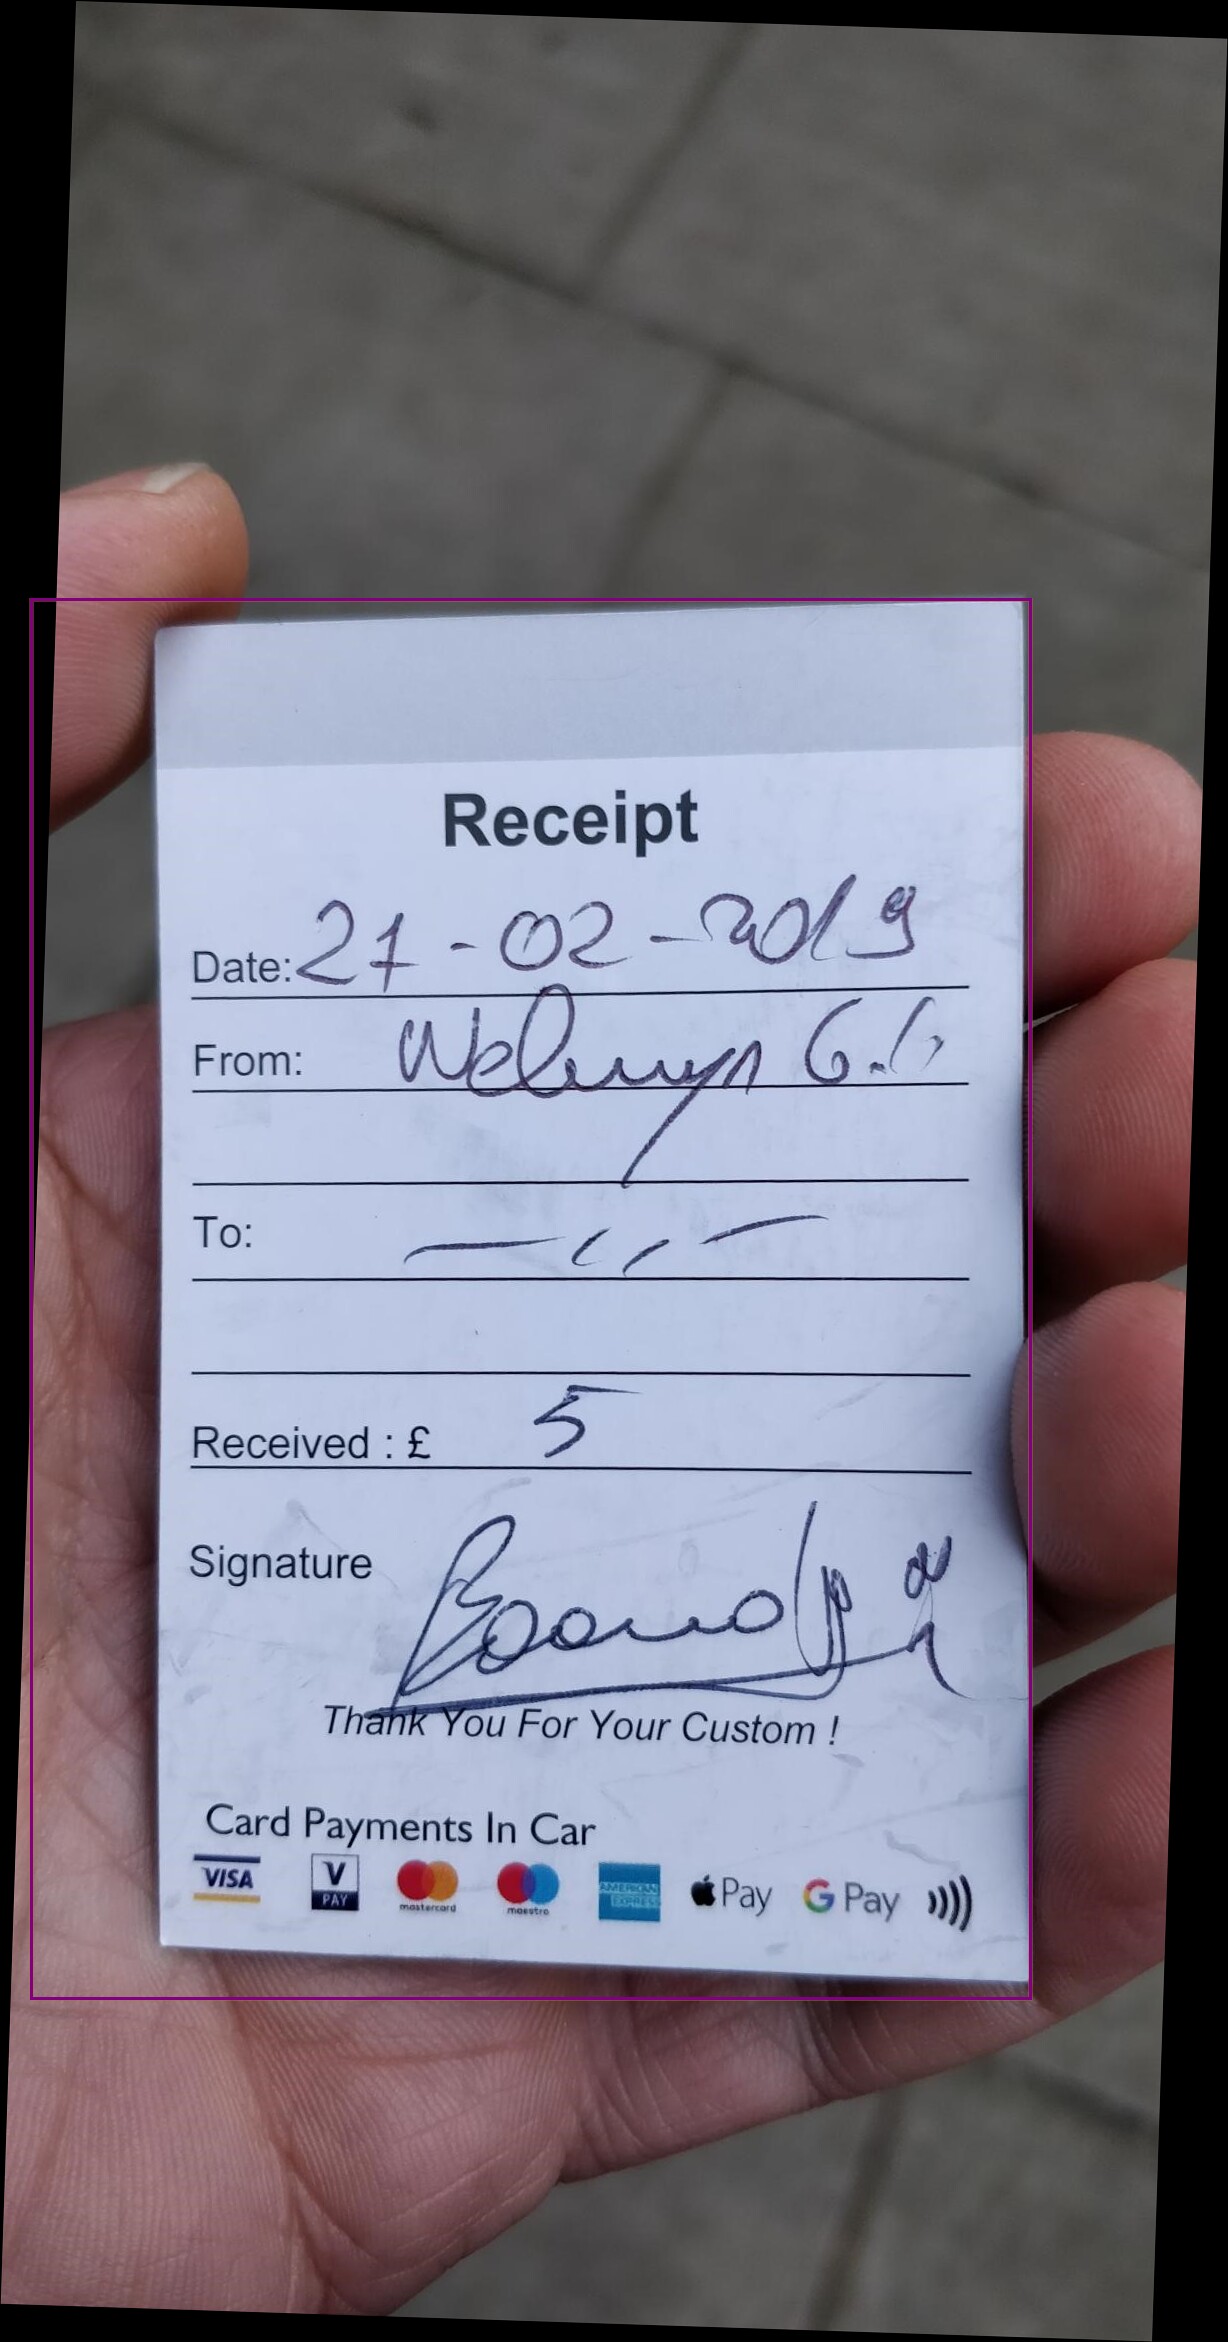 Receipt
Date: 27-02-2019
From: Welwyn G.C
To: — ,, —
Received : £ 5
Signature
Thank You For Your Custom !
Card Payments In Car
VISA V PAY mastercard maestro AMERICAN EXPRESS Pay G Pay